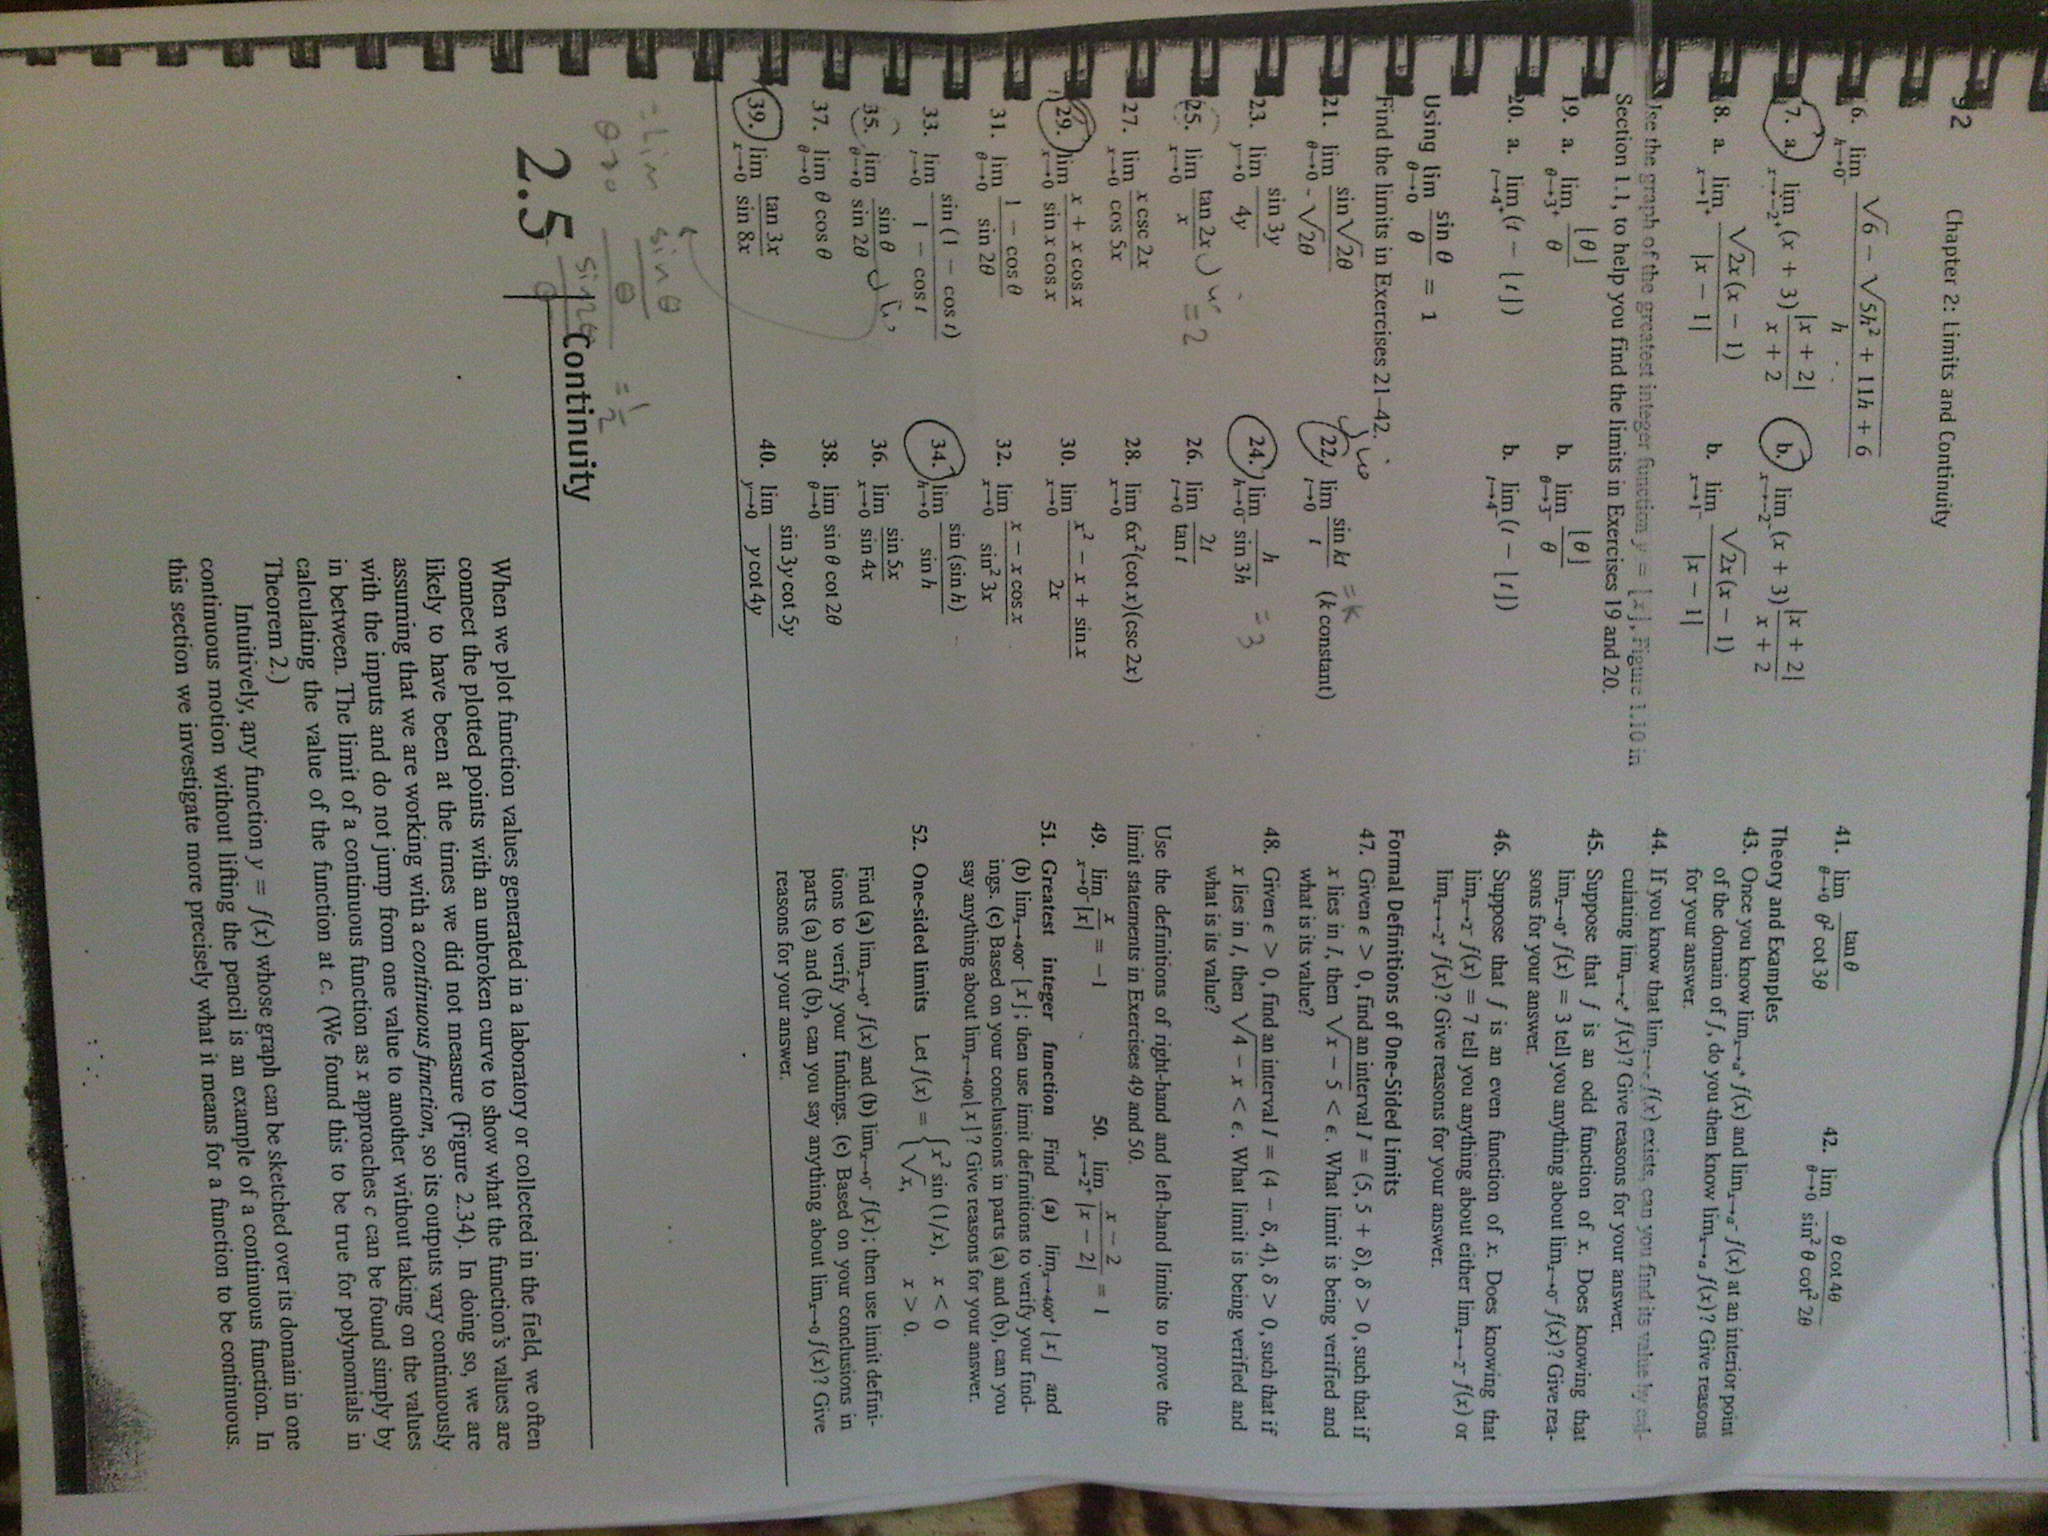 92 Chapter 2: Limits and Continuity
6. lim h→0⁻ (√6 − √(5h² + 11h + 6)) / h
17. a. lim x→−2⁺ (x + 3) |x + 2| / (x + 2) b. lim x→−2⁻ (x + 3) |x + 2| / (x + 2)
18. a. lim x→1⁺ √2x (x − 1) / |x − 1| b. lim x→1⁻ √2x (x − 1) / |x − 1|
Use the graph of the greatest integer function y = ⌊x⌋, Figure 1.10 in
Section 1.1, to help you find the limits in Exercises 19 and 20.
19. a. lim θ→3⁺ ⌊θ⌋ / θ b. lim θ→3⁻ ⌊θ⌋ / θ
20. a. lim t→4⁺ (t − ⌊t⌋) b. lim t→4⁻ (t − ⌊t⌋)
Using lim θ→0 sin θ / θ = 1
Find the limits in Exercises 21–42.
21. lim θ→0 sin √2θ / √2θ 22. lim t→0 sin kt / t (k constant) = k
23. lim y→0 sin 3y / 4y 24. lim h→0⁻ h / sin 3h = 3
25. lim x→0 tan 2x / x = 2 26. lim t→0 2t / tan t
27. lim x→0 x csc 2x / cos 5x 28. lim x→0 6x²(cot x)(csc 2x)
29. lim x→0 (x + x cos x) / (sin x cos x) 30. lim x→0 (x² − x + sin x) / 2x
31. lim θ→0 (1 − cos θ) / sin 2θ 32. lim x→0 (x − x cos x) / sin² 3x
33. lim t→0 sin (1 − cos t) / (1 − cos t) 34. lim h→0 sin (sin h) / sin h
35. lim θ→0 sin θ / sin 2θ 36. lim x→0 sin 5x / sin 4x
37. lim θ→0 θ cos θ 38. lim θ→0 sin θ cot 2θ
39. lim x→0 tan 3x / sin 8x 40. lim y→0 sin 3y cot 5y / y cot 4y
= lim θ→0 (sin θ / θ) / (sin 2θ / θ) = 1/2
41. lim θ→0 tan θ / θ² cot 3θ 42. lim θ→0 θ cot 4θ / sin² θ cot² 2θ
Theory and Examples
43. Once you know limₓ→ₐ⁺ f(x) and limₓ→ₐ⁻ f(x) at an interior point
of the domain of f, do you then know limₓ→ₐ f(x)? Give reasons
for your answer.
44. If you know that lim x→c f(x) exists, can you find its value by cal-
culating lim x→c⁺ f(x)? Give reasons for your answer.
45. Suppose that f is an odd function of x. Does knowing that
lim x→0⁺ f(x) = 3 tell you anything about lim x→0⁻ f(x)? Give rea-
sons for your answer.
46. Suppose that f is an even function of x. Does knowing that
lim x→2⁻ f(x) = 7 tell you anything about either lim x→−2⁻ f(x) or
lim x→−2⁺ f(x)? Give reasons for your answer.
Formal Definitions of One-Sided Limits
47. Given ε > 0, find an interval I = (5, 5 + δ), δ > 0, such that if
x lies in I, then √(x − 5) < ε. What limit is being verified and
what is its value?
48. Given ε > 0, find an interval I = (4 − δ, 4), δ > 0, such that if
x lies in I, then √(4 − x) < ε. What limit is being verified and
what is its value?
Use the definitions of right-hand and left-hand limits to prove the
limit statements in Exercises 49 and 50.
49. lim x→0⁻ x / |x| = −1 50. lim x→2⁺ (x − 2) / |x − 2| = 1
51. Greatest integer function Find (a) lim x→400⁺ ⌊x⌋ and
(b) lim x→400⁻ ⌊x⌋; then use limit definitions to verify your find-
ings. (c) Based on your conclusions in parts (a) and (b), can you
say anything about lim x→400 ⌊x⌋? Give reasons for your answer.
52. One-sided limits Let f(x) = { x² sin (1/x), x < 0
√x, x > 0.
Find (a) lim x→0⁺ f(x) and (b) lim x→0⁻ f(x); then use limit defini-
tions to verify your findings. (c) Based on your conclusions in
parts (a) and (b), can you say anything about lim x→0 f(x)? Give
reasons for your answer.
2.5 Continuity
When we plot function values generated in a laboratory or collected in the field, we often
connect the plotted points with an unbroken curve to show what the function's values are
likely to have been at the times we did not measure (Figure 2.34). In doing so, we are
assuming that we are working with a continuous function, so its outputs vary continuously
with the inputs and do not jump from one value to another without taking on the values
in between. The limit of a continuous function as x approaches c can be found simply by
calculating the value of the function at c. (We found this to be true for polynomials in
Theorem 2.)
Intuitively, any function y = f(x) whose graph can be sketched over its domain in one
continuous motion without lifting the pencil is an example of a continuous function. In
this section we investigate more precisely what it means for a function to be continuous.